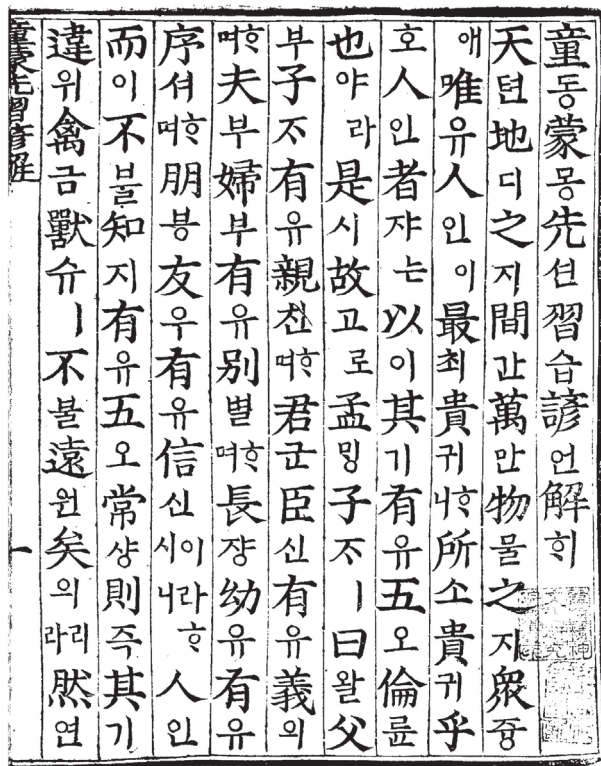 童동蒙몽先션習습諺언解ᄒᆡ
天텬地디之지間간萬만物물之지衆즁
애唯유人인이最최貴귀ᄒᆞ니所소貴귀乎
호人인者쟈는以이其기有유五오倫륜
也야라是시故고로孟ᄆᆡᆼ子ᄌᆞㅣ曰왈父
부子ᄌᆞ有유親친ᄒᆞ며君군臣신有유義의
ᄒᆞ며夫부婦부有유別별ᄒᆞ며長쟝幼유有유
序셔ᄒᆞ며朋붕友우有유信신이라ᄒᆞ시니人인
而이不불知지有유五오常샹則즉其기
違위禽금獸슈ㅣ不불遠원矣의리라然연
童蒙先習諺解 一